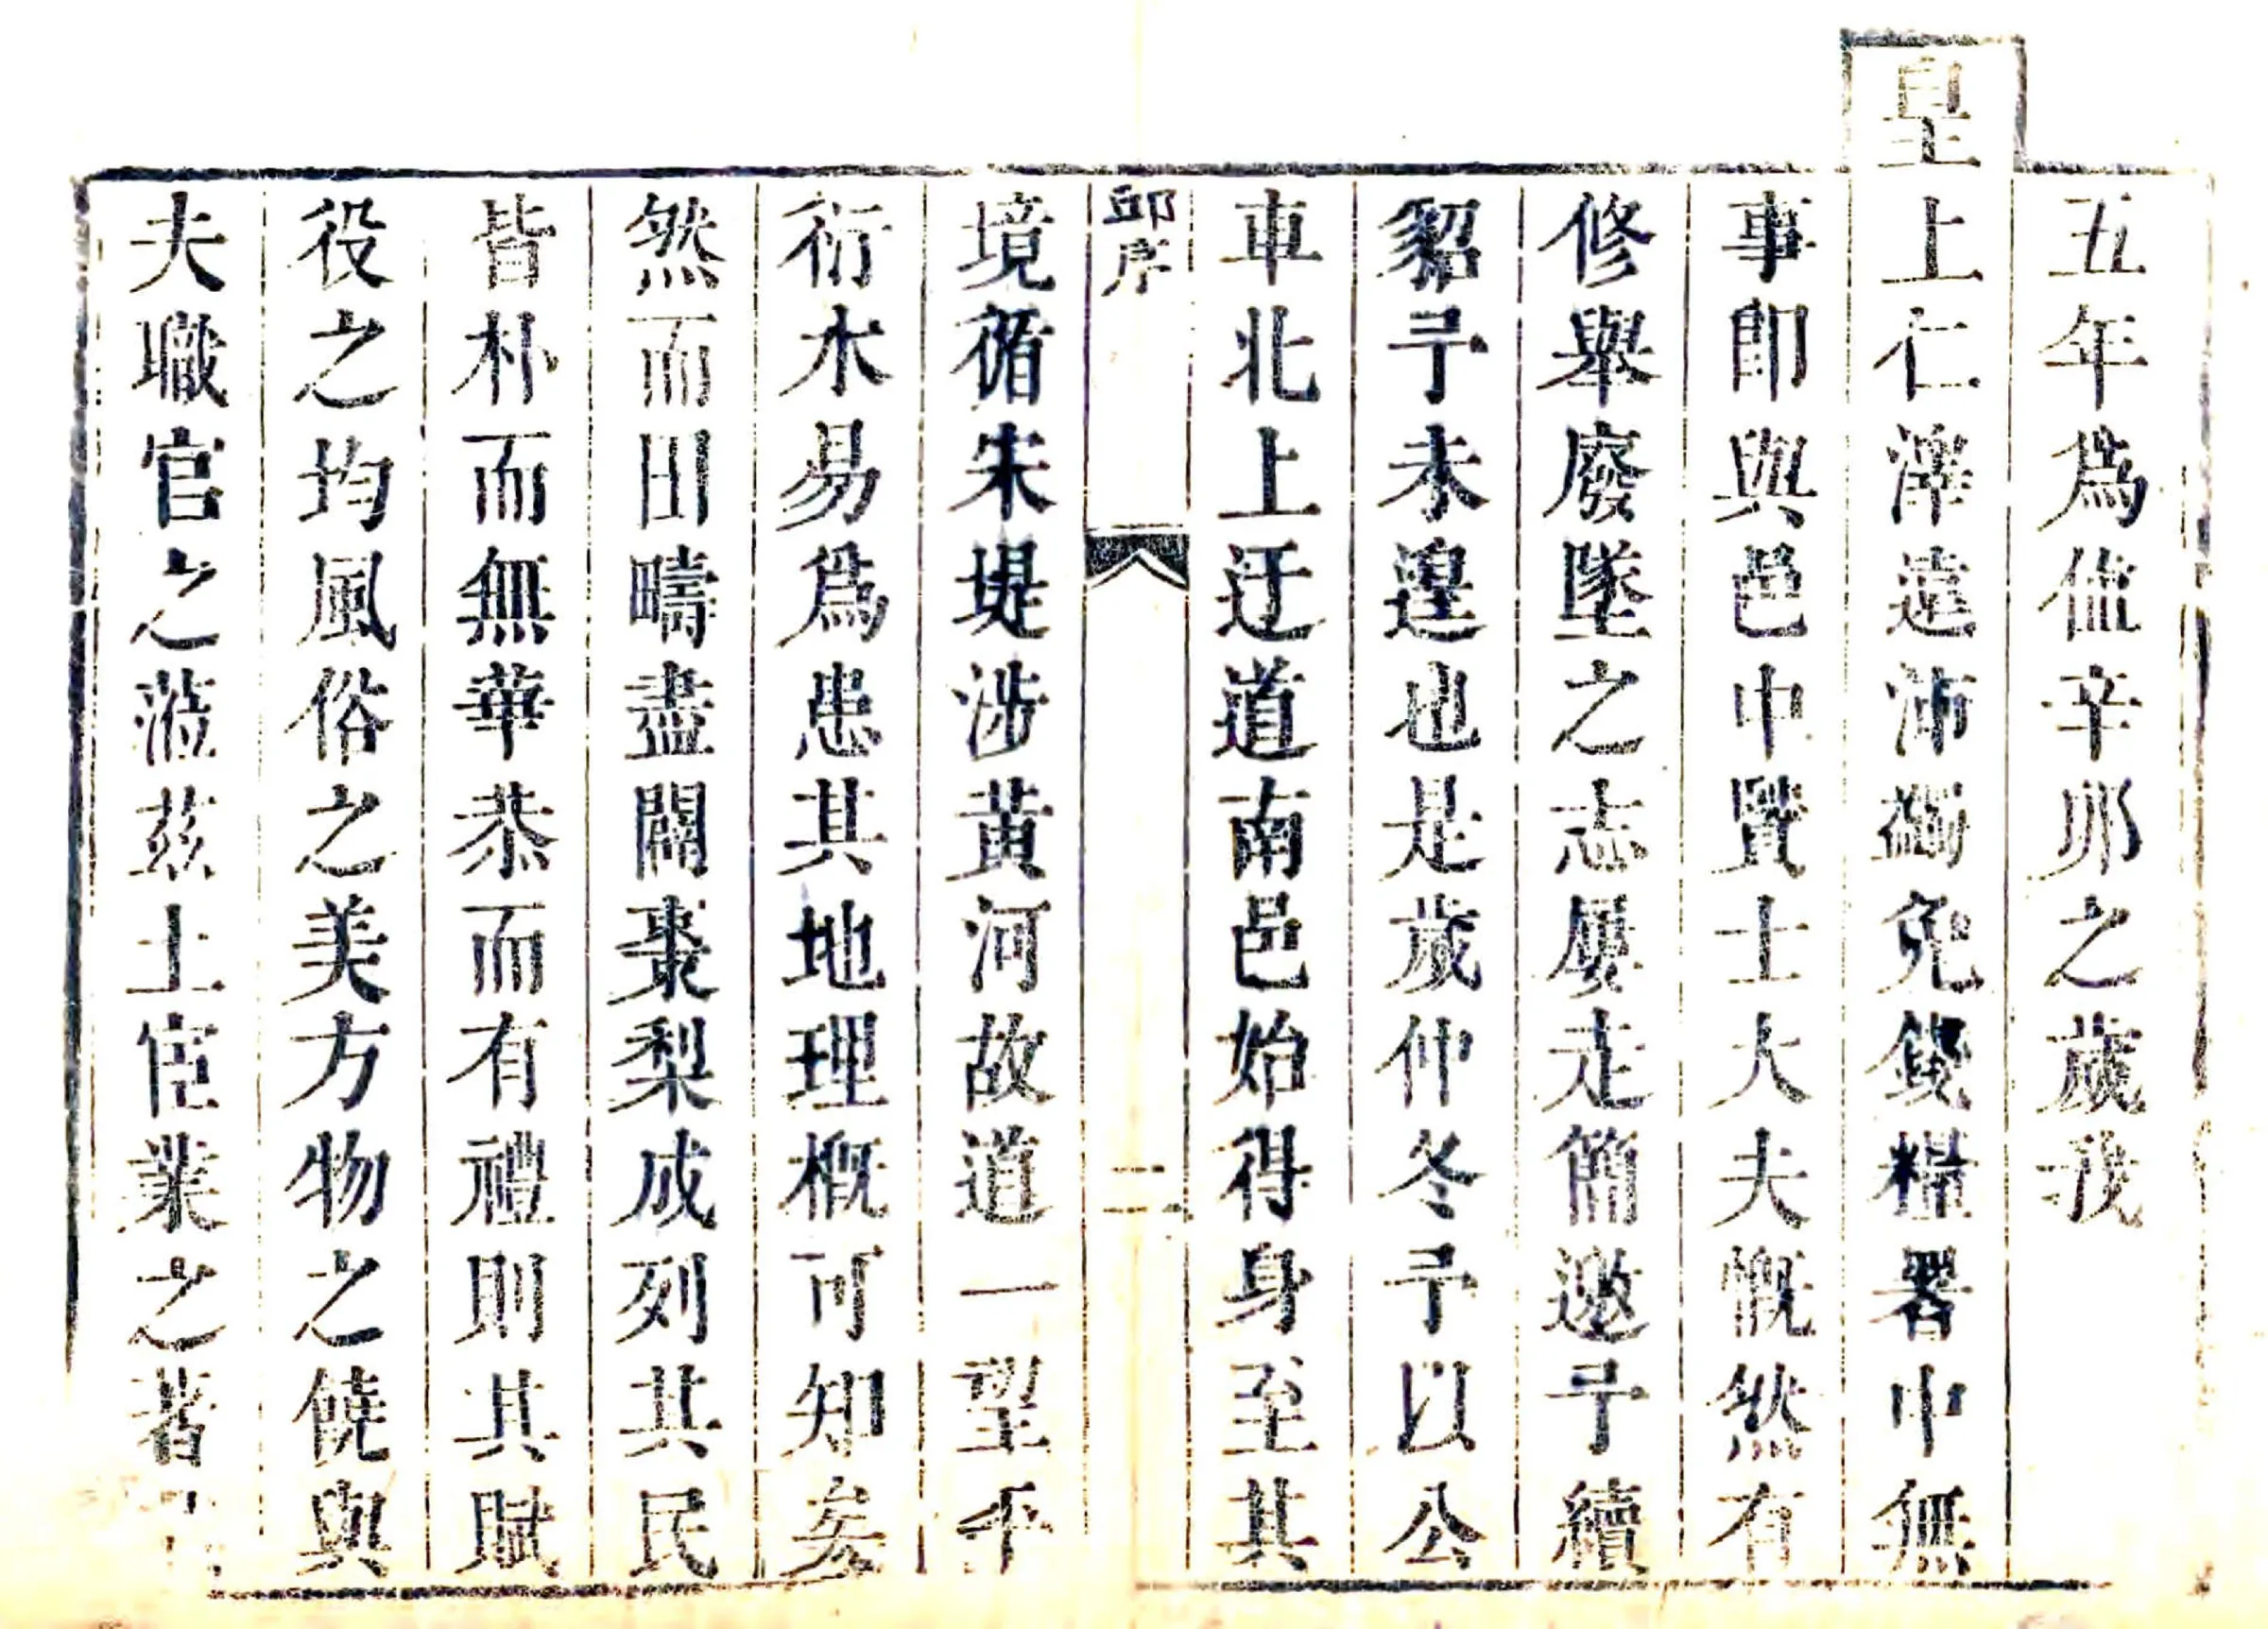 五年爲値辛卯之歲我
皇上仁澤遠沛蠲免錢糧署中無
事卽與邑中賢士大夫慨然有
修舉廢墜之志屢走簡邀予續
貂予未遑也是歲仲冬予以公
車北上迂道南邑始得身至其
邱序
二
境循朱堤涉黃河故道一望平
衍水易爲患其地理槪可知矣
然而田疇盡闢棗梨成列其民
皆朴而無華恭而有禮則其賦
役之均風俗之美方物之饒與
夫職官之蒞茲土宦業之著